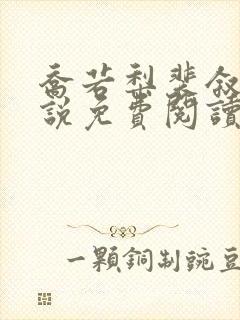 喬若梨裴敘
說免費閱讀
一顆銅制豌豆